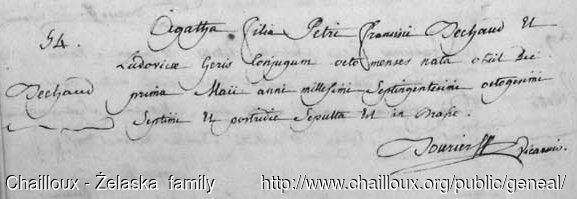 54. Agatha filia Petri Francisci Dechaud et
Ludovicæ Geris Conjugum octo menses nata obiit die
Dechaud prima Maii anni millesimi Septingentesimi octogesimi
Septimi et postridie Sepulta est in
Vicarius.
Chailloux - Żelaska family http://www.chailloux.org/public/geneal/